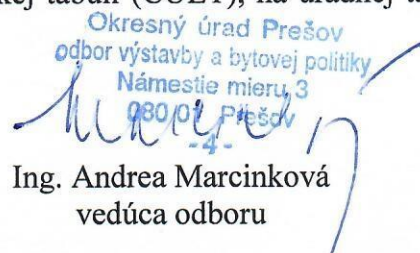 tabuli (CUET), na úradnej
Okresný úrad Prešov
odbor výstavby a bytovej politiky
Námestie mieru 3
080 01 Prešov
-4-
Ing. Andrea Marcinková
vedúca odboru